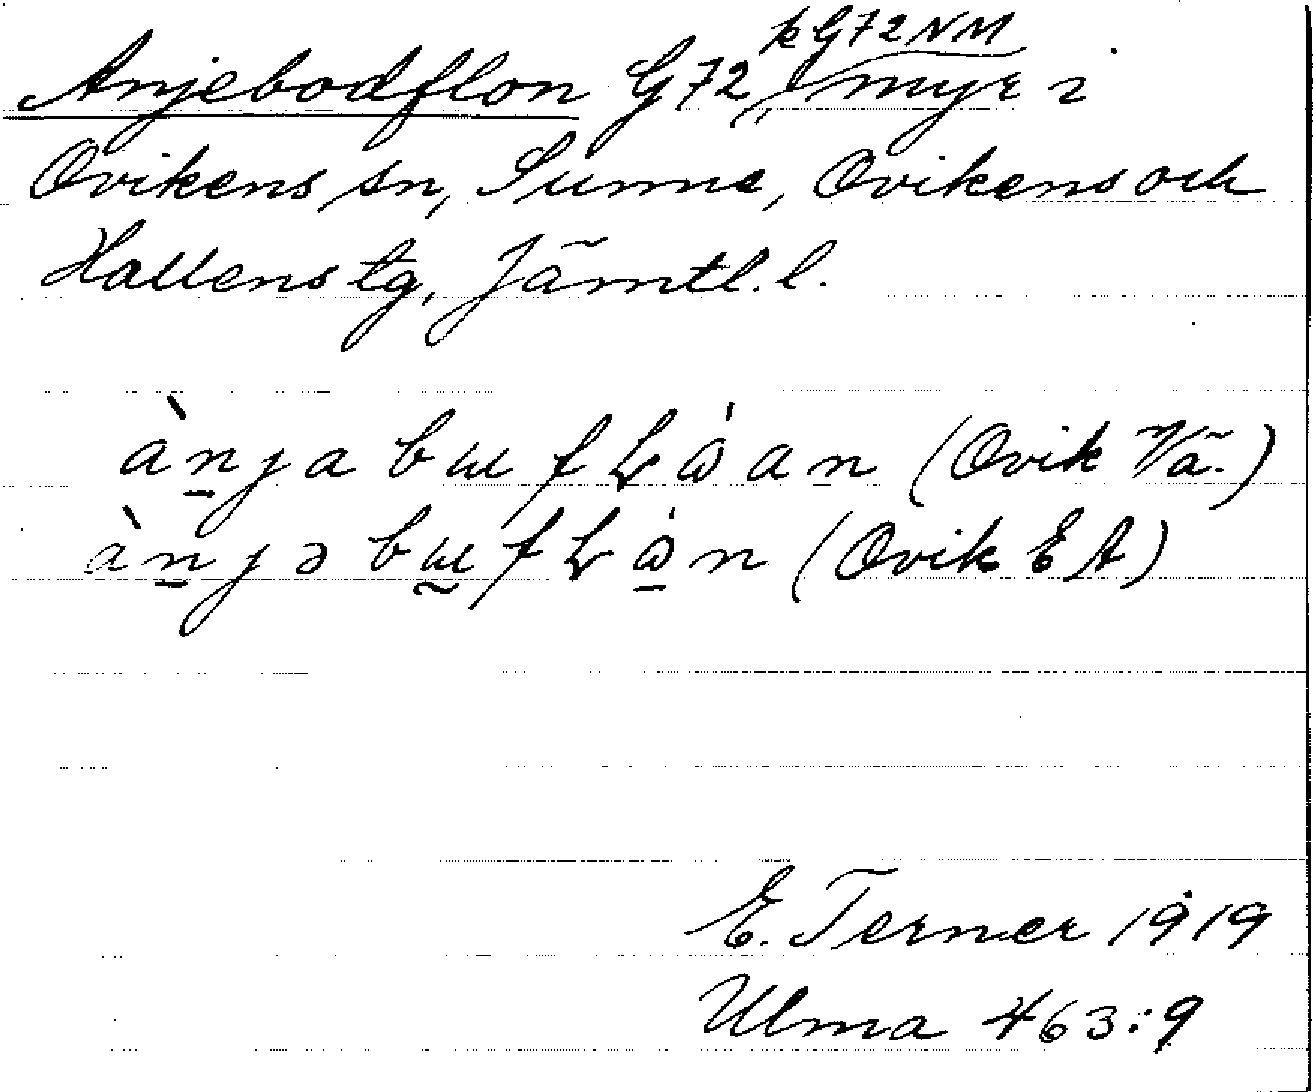 Anjebodflon G72, kG72NM myr i
Ovikens sn, Sunne, Ovikens och
Hallens tg, Jämtl. l.
ànja bɯ fⱢɷ́ an (Ovik Vä.)
ànjə bɯ fⱢɷ́n (Ovik E A)
E. Terner 1919
Ulma 463:9